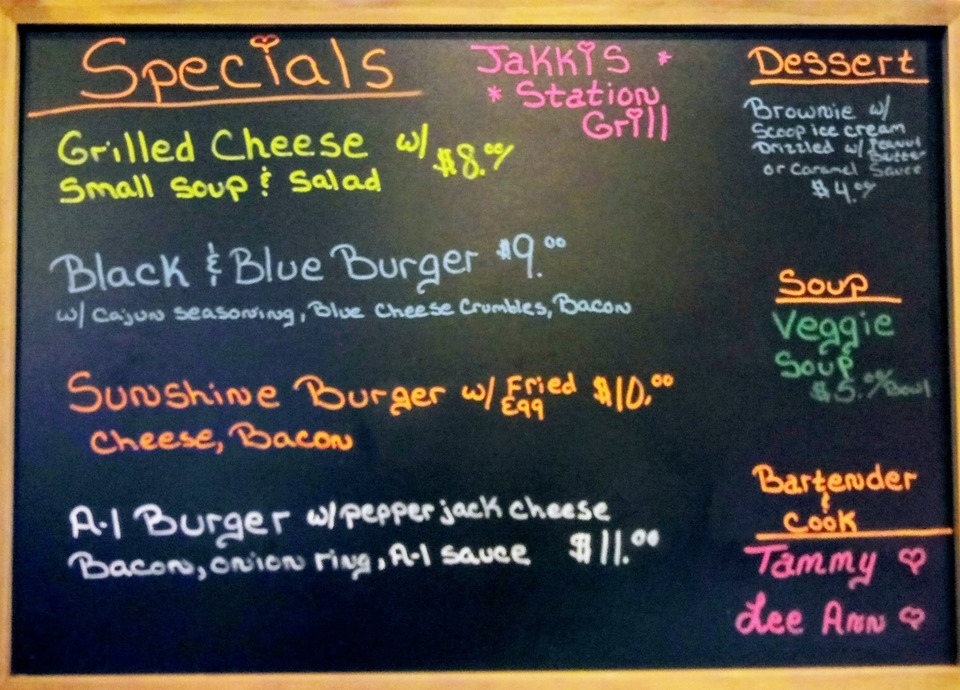 Specials
Grilled Cheese w/ $8.00
Small Soup & Salad
Black & Blue Burger $9.00
w/ Cajun Seasoning, Blue Cheese Crumbles, Bacon
Sunshine Burger w/ Fried Egg $10.00
Cheese, Bacon
A-1 Burger w/ pepper jack cheese
Bacon, onion ring, A-1 sauce $11.00
Jakki's *
* Station
Grill
Dessert
Brownie w/
Scoop ice cream
Drizzled w/ Peanut
Butter
or Caramel Sauce
$4.00
Soup
Veggie
Soup
$5.00/Bowl
Bartender
&
Cook
Tammy ♡
Lee Ann ♡